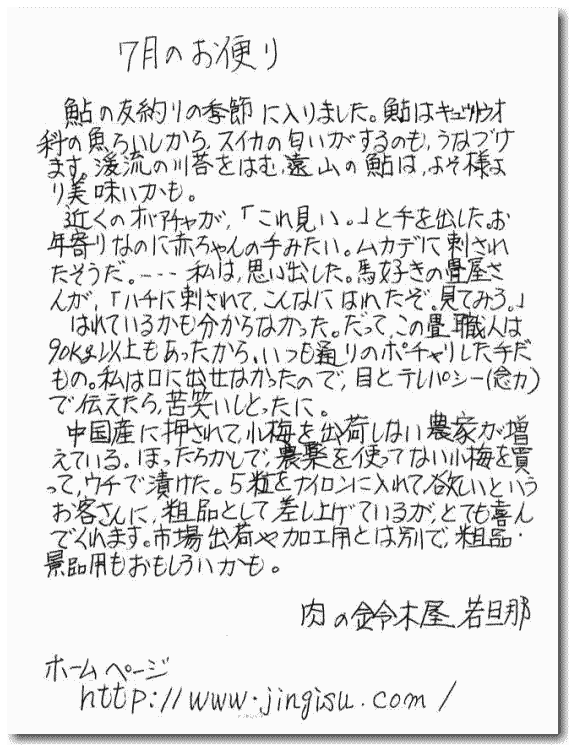 7月のお便り
鮎の友釣りの季節に入りました。鮎はキュウリウオ
科の魚らいしから、スイカの匂いがするのも、うなづけ
ます。渓流の川苔をはむ、遠山の鮎は、よそ様よ
り美味いかも。
近くのオバアチャが、「これ見い。」と手を出した。お
年寄りなのに赤ちゃんの手みたい。ムカデに刺され
たそうだ。---- 私は、思い出した。馬好きの畳屋さ
んが、「ハチに刺されて、こんなにはれたぞ。見てみろ。」
はれているかも分からなかった。だって、この畳職人は
90Kg以上もあったから、いつも通りのポチャりした手だ
もの。私は口に出せなかったので、目とテレパシー(念力)
で伝えたら、苦笑いしとったに。
中国産に押されて、小梅を出荷しない農家が増
えている。ほったらかしで、農薬を使ってない小梅を買
って、ウチで漬けた。5粒をナイロンに入れて、欲しいという
お客さんに、粗品として差し上げているが、とても喜ん
でくれます。市場出荷や加工用とは別で、粗品・
景品用もおもしろいかも。
肉の鈴木屋 若旦那
ホームページ
http://www.jingisu.com/